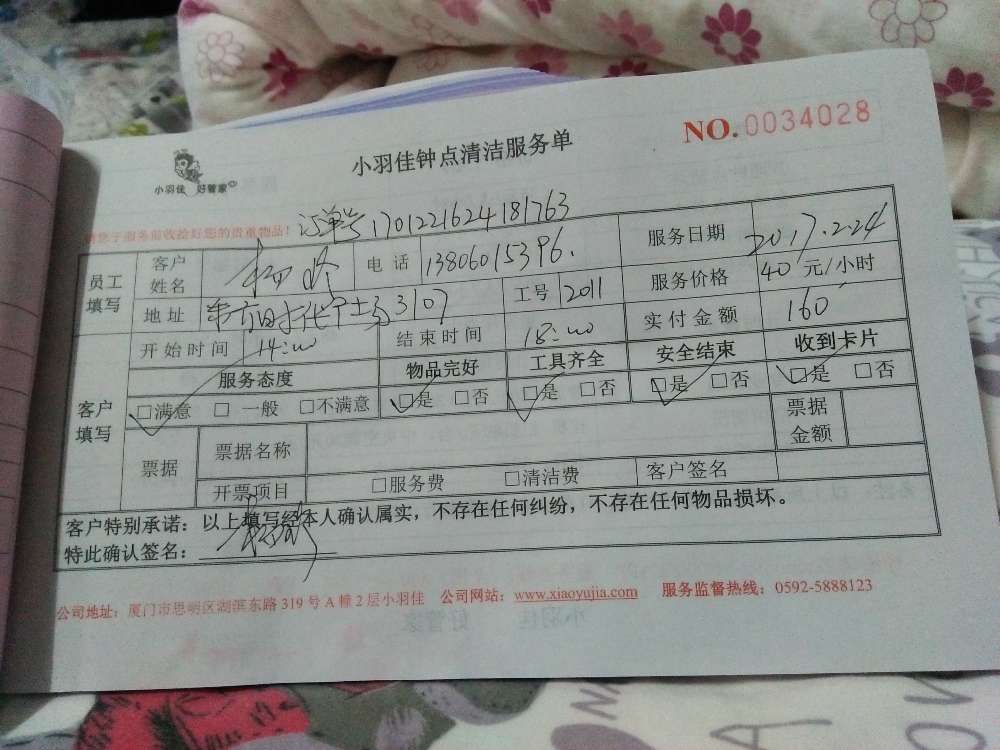 小羽佳 好管家
小羽佳钟点清洁服务单
NO.0034028
请您于服务前收捡好您的贵重物品!
订单号 1701221624181763
员工填写 客户姓名 电话 13806015396. 服务日期 2017.2.24
地址 3107 工号 2011 服务价格 40 元/小时
开始时间 14:00 结束时间 18:00 实付金额 160
客户填写 服务态度 物品完好 工具齐全 安全结束 收到卡片
☑满意 □一般 □不满意 ☑是 □否 ☑是 □否 ☑是 □否 ☑是 □否
票据 票据名称 票据金额
开票项目 □服务费 □清洁费 客户签名
客户特别承诺：以上填写经本人确认属实，不存在任何纠纷，不存在任何物品损坏。
特此确认签名：
公司地址：厦门市思明区湖滨东路 319 号 A 幢 2 层小羽佳 公司网站：www.xiaoyujia.com 服务监督热线：0592-5888123